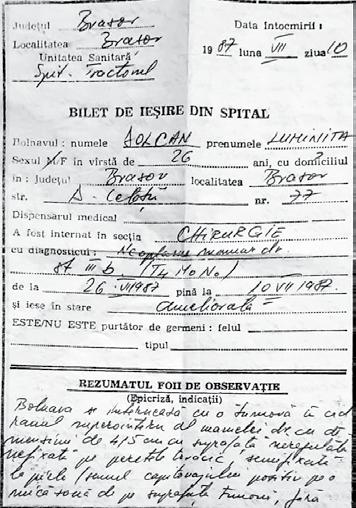 Județul Brașov
Localitatea Brașov
Unitatea Sanitară
Spit. Tractorul
Data întocmirii:
1987 luna VII ziua 10
BILET DE IEȘIRE DIN SPITAL
Bolnavul: numele DOLCAN prenumele LUMINIȚA
Sexul M/F în vîrstă de 26 ani, cu domiciliul
în: Județul Brașov localitatea Brașov
str. nr. 77
Dispensarul medical
A fost internat în secția CHIRURGIE
cu diagnosticul: Neoplasm mamar dr.
st III b (T4 N0 M0)
de la 26 VI 1987 pînă la 10 VII 1987
și iese în stare ameliorată
ESTE/NU ESTE purtător de germeni: felul
tipul
REZUMATUL FOII DE OBSERVAȚIE
(Epicriză, indicații)
Bolnava se internează cu o tumoră în cad
ranul superoextern al mamelei dr. cu di
mensiuni de 4/5 cm cu suprafața neregulată
nefixată pe peretele toracic,
la piele (semnul capitonajului pozitiv pe o
mică zonă de pe suprafața tumorii, fără